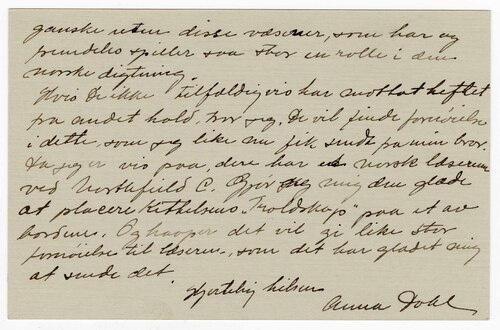 ganske uten disse væsener, som har og
fremdeles spiller saa stor en rolle i den
norske digtning.
Hvis De ikke tilfældigvis har mottat heftet
fra andet hold, tror jeg, De vil finde fornöielse
i dette, som jeg like nu fik sendt fra min bror.
Da jeg er vis paa, dere har et norsk læserum
ved Northfield C. Gjör mig den glæde
at placere Kittelsens "Troldskap" paa et av
bordene. Og haaper det vil gi like stor
fornöielse til læseren, som det har glædet mig
at sende det.
Hjertelig hilsen
Anna Dahl